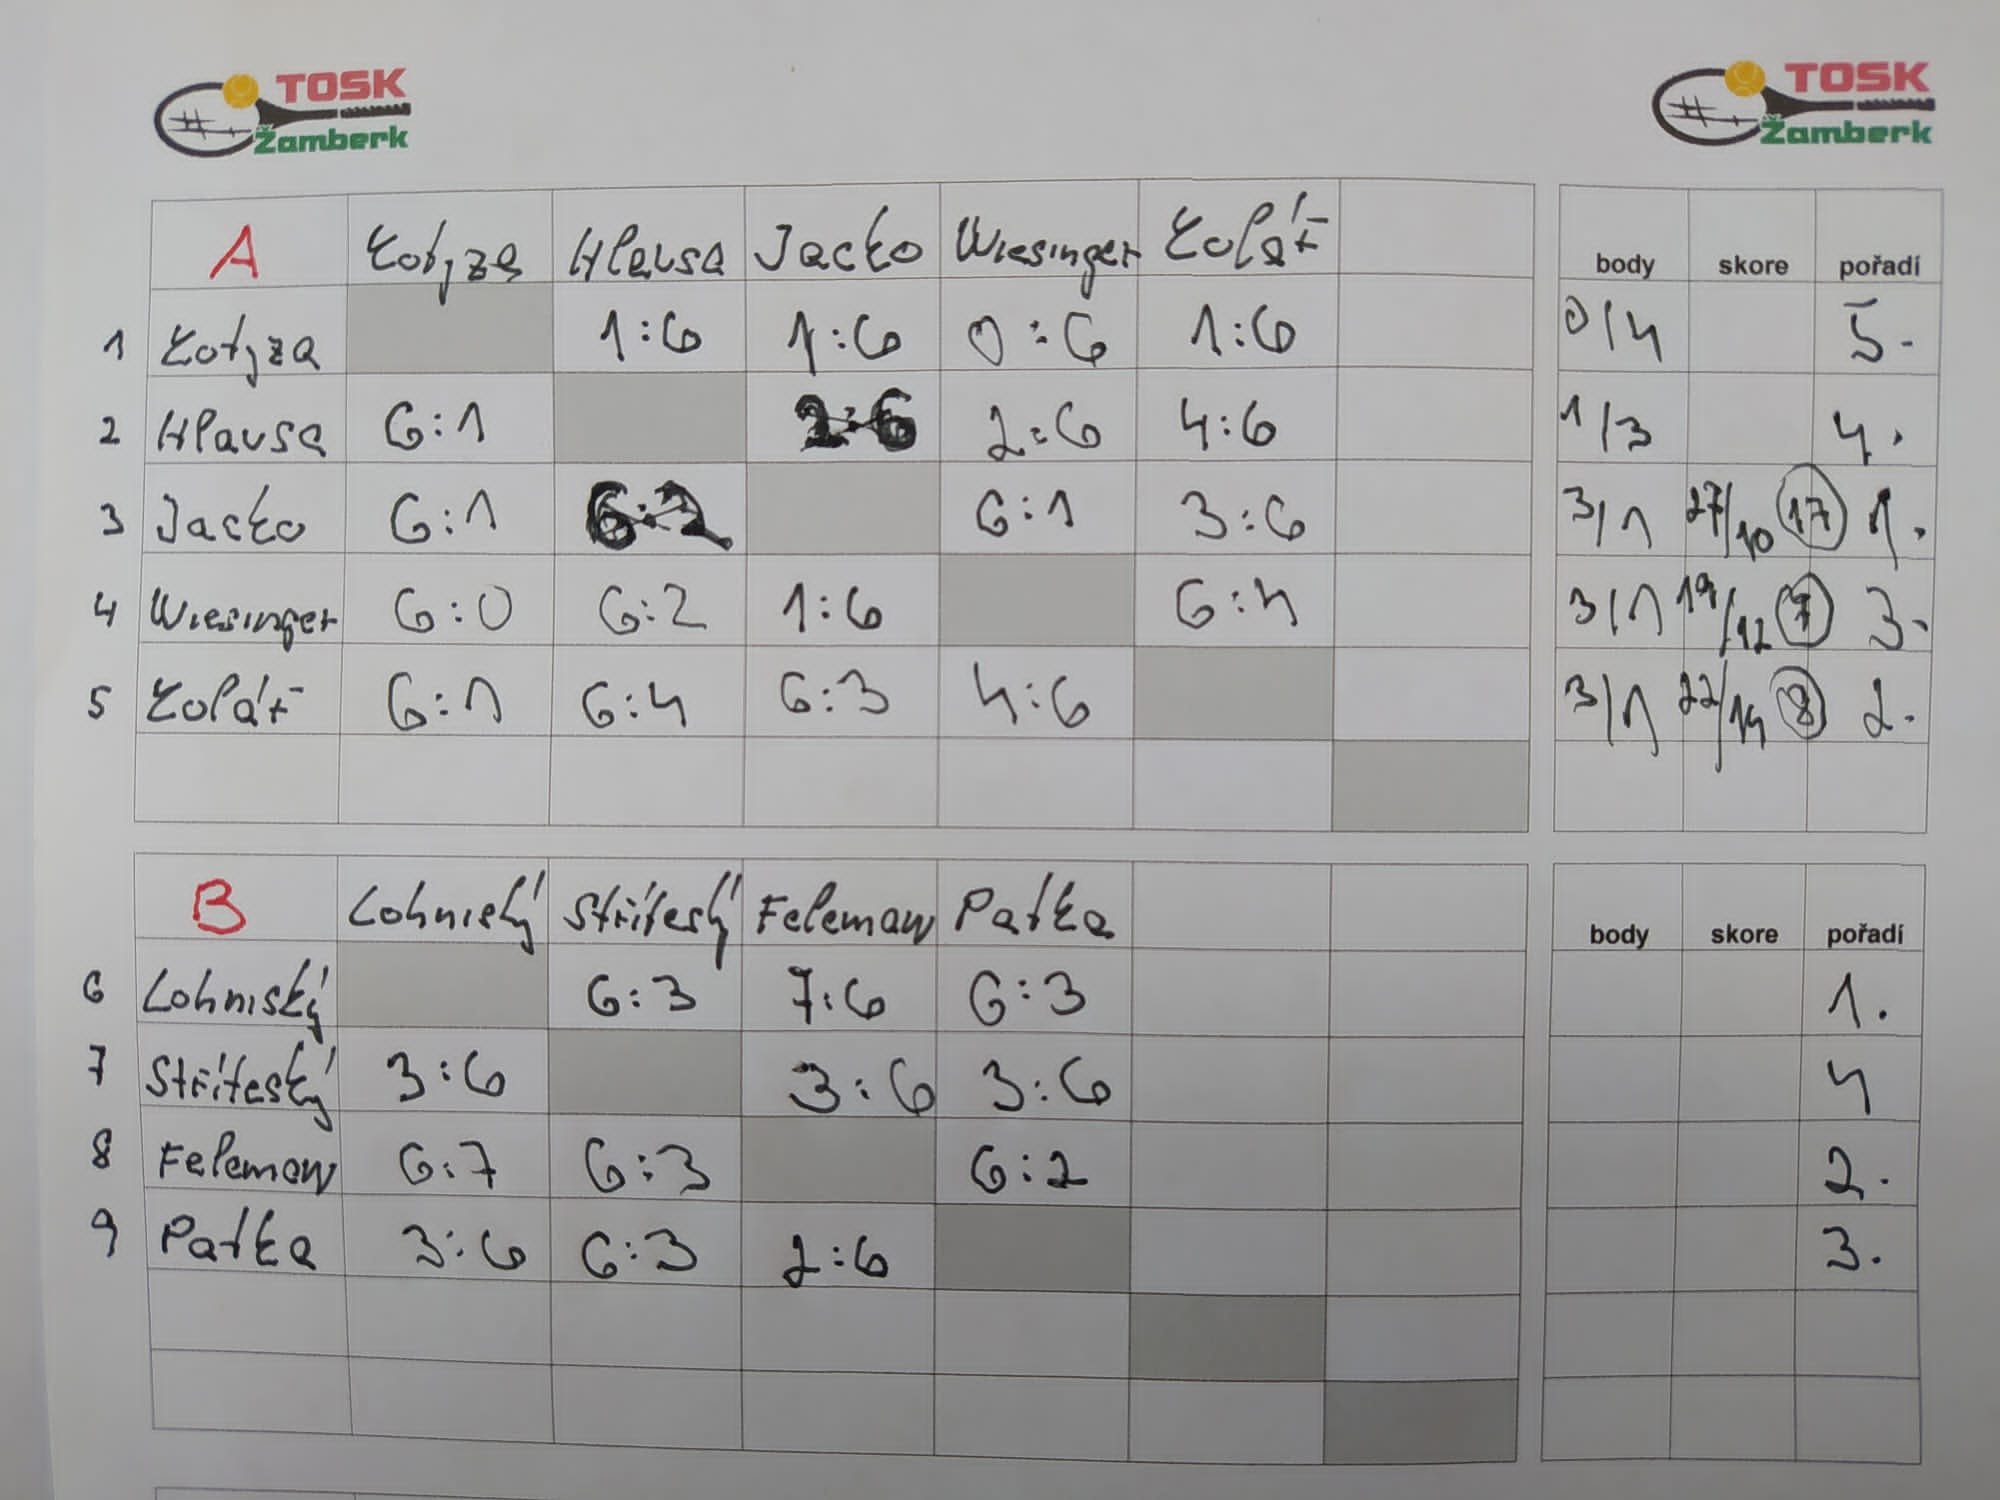 TOSK
Žamberk
TOSK
Žamberk
A Kotyza Hlavsa Jacko Wiesinger Kolář body skore pořadí
1 Kotyza 1:6 1:6 0:6 1:6 0/4 5.
2 Hlavsa 6:1 2:6 2:6 4:6 1/3 4.
3 Jacko 6:1 6:2 6:1 3:6 3/1 27/10 17 1.
4 Wiesinger 6:0 6:2 1:6 6:4 3/1 19/12 7 3.
5 Kolář 6:1 6:4 6:3 4:6 3/1 22/14 8 2.
B Lohniský Stříteský Felemaw Paťka body skore pořadí
6 Lohniský 6:3 7:6 6:3 1.
7 Stříteský 3:6 3:6 3:6 4
8 Felemaw 6:7 6:3 6:2 2.
9 Paťka 3:6 6:3 2:6 3.